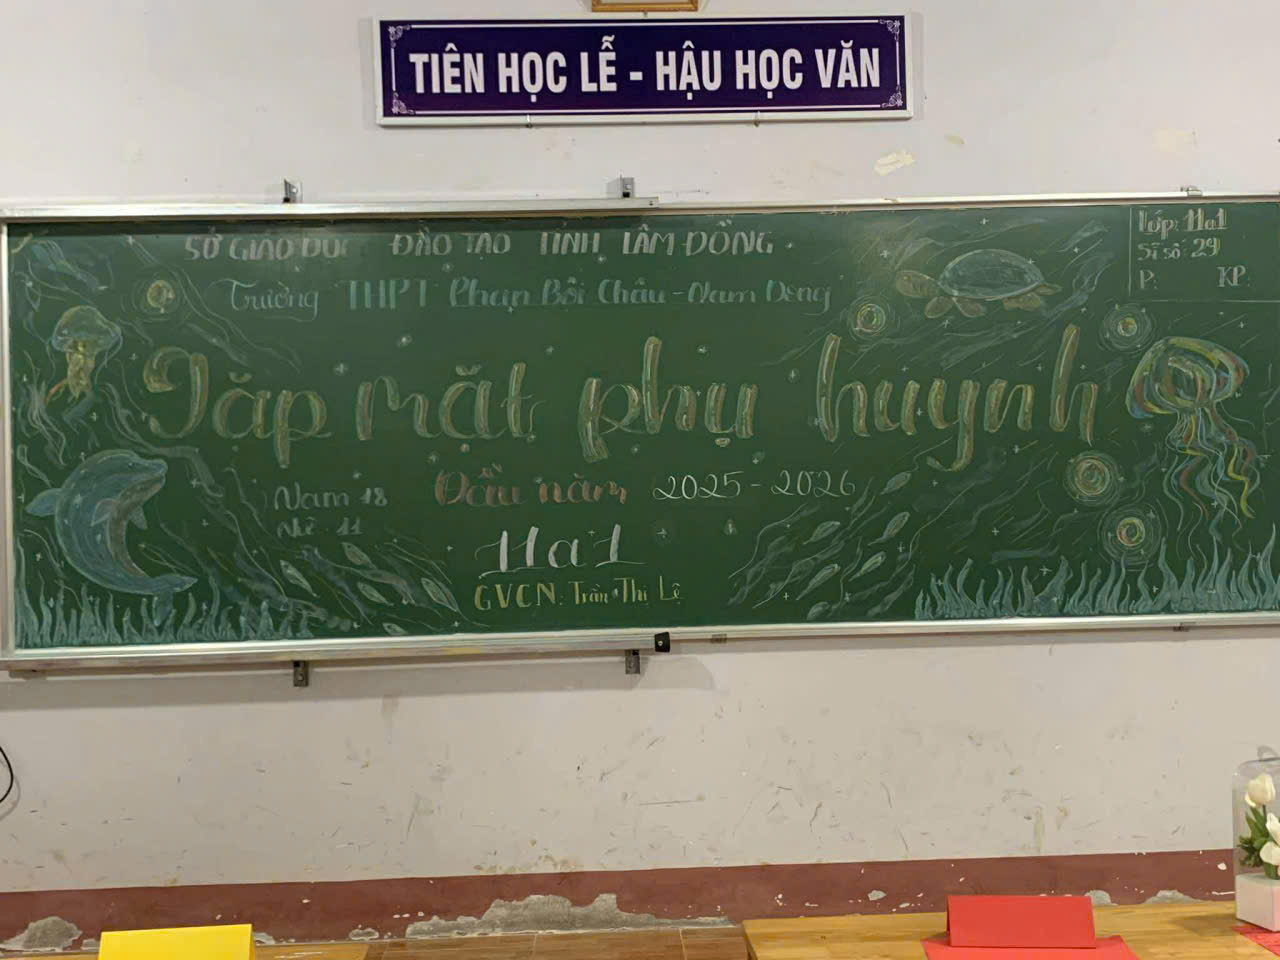 TIÊN HỌC LỄ - HẬU HỌC VĂN
SỞ GIÁO DỤC ĐÀO TẠO TỈNH LÂM ĐỒNG
Trường THPT Phan Bội Châu - Nam Dong
Lớp: 11a1
Sĩ số: 29
P: KP:
Gặp mặt phụ huynh
Đầu năm 2025 - 2026
Nam 18
Nữ 11
11a1
GVCN: Trần Thị Lệ